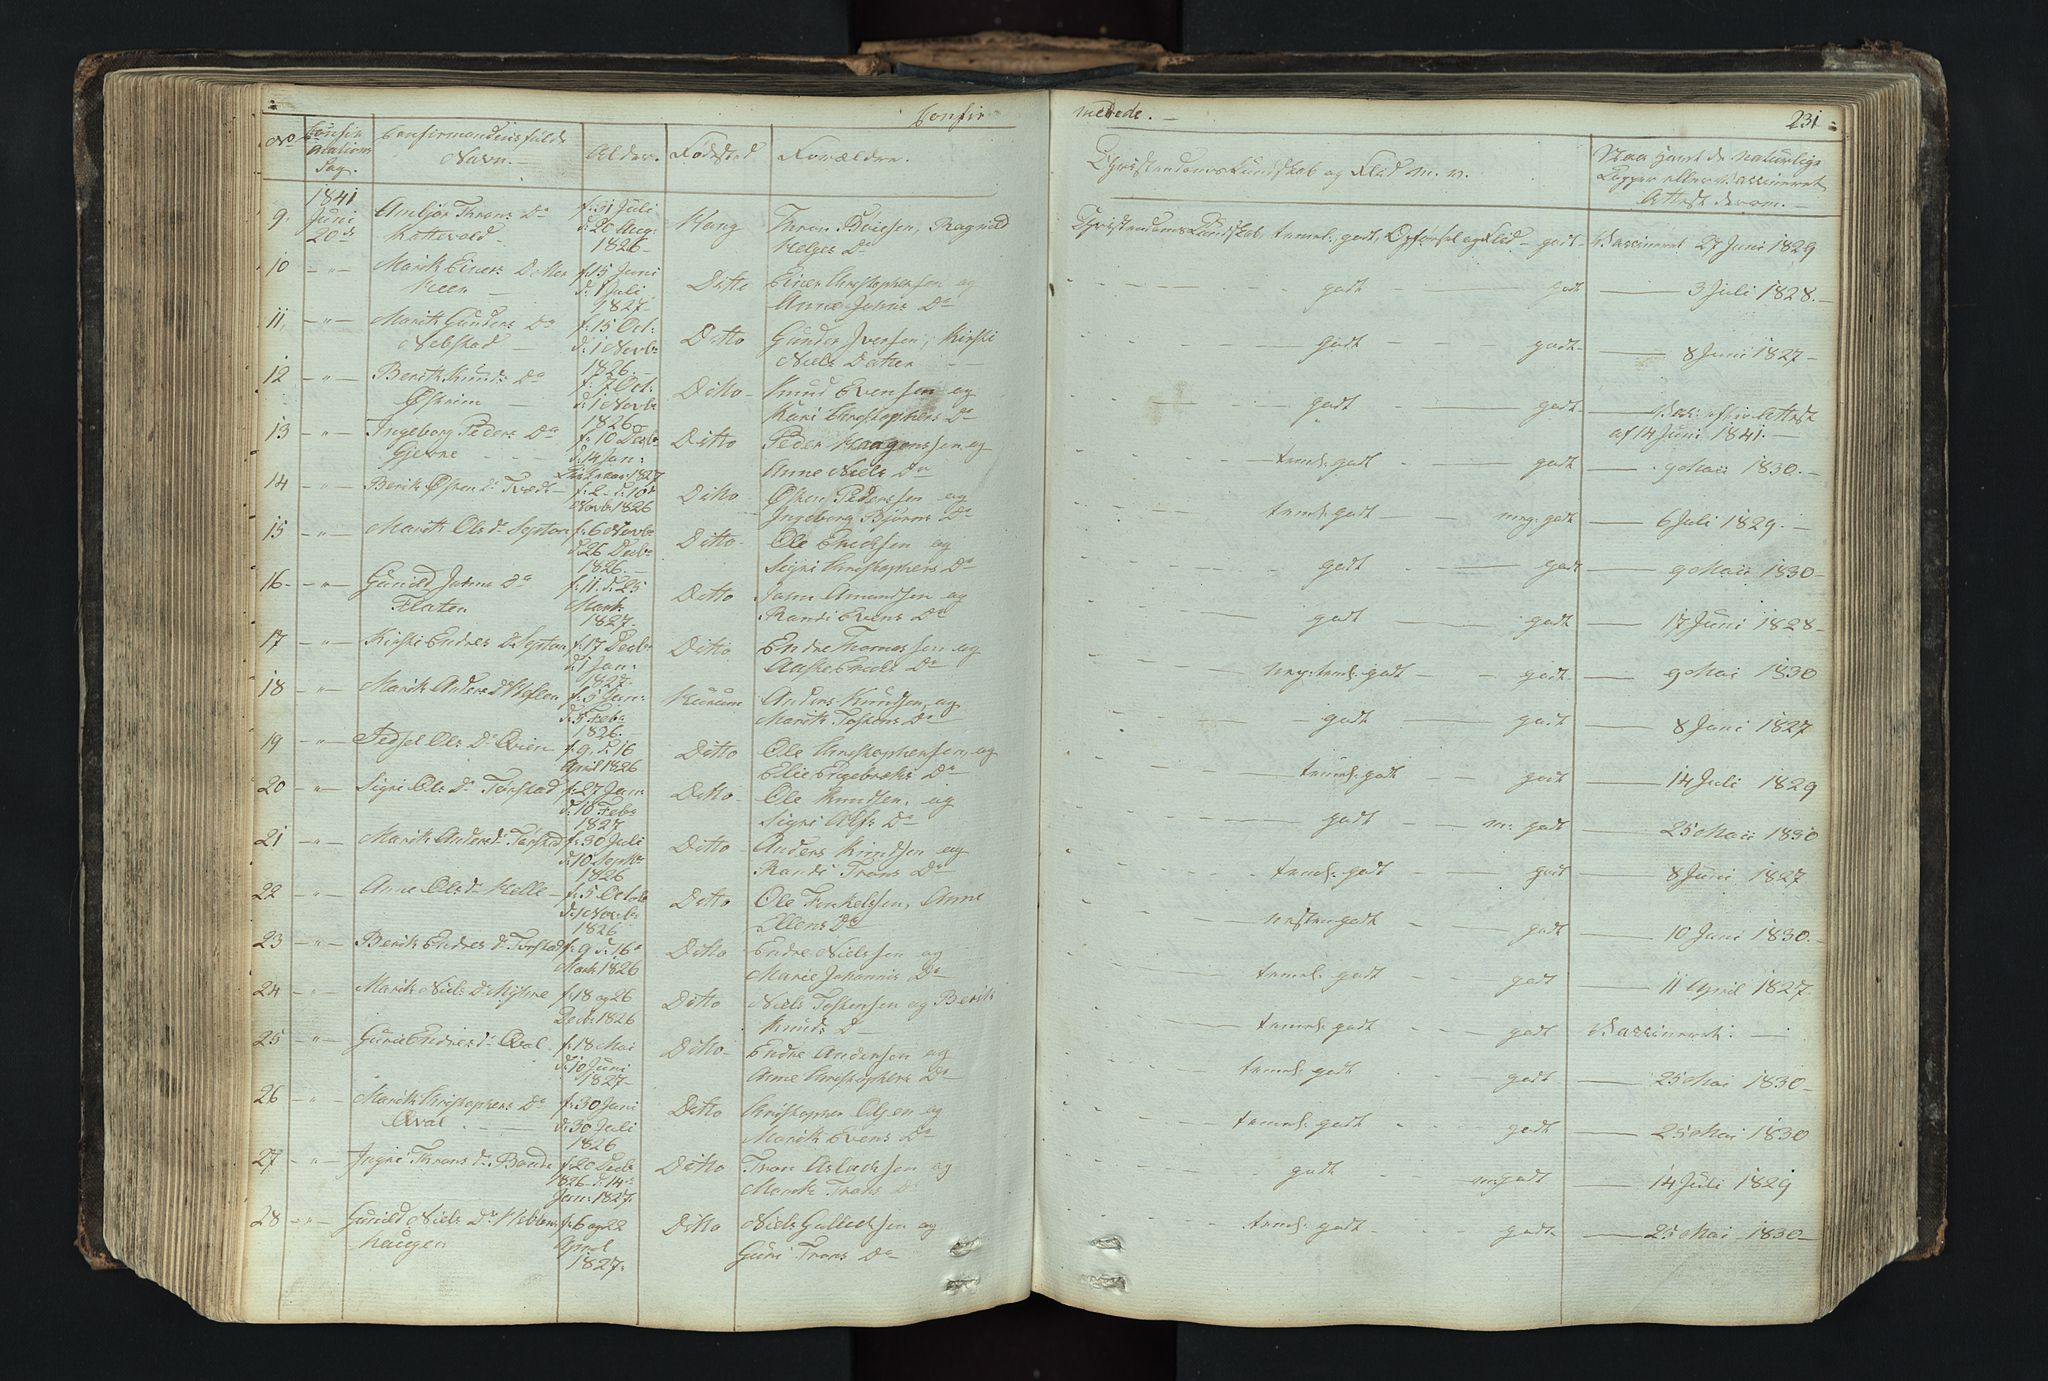 Confir
merede. —
231
No
Confir
mations
Dag.
Confirmandens fulde
Navn. —
Alder.
Fødested
Forældre.
Christendoms Kundskab og Flid m. v.
Naar havt de naturlige
Kopper eller Vaccineret
Attest derom. —
9. 1841 Juni 20de
Ambjør Throns Da
Kattevold
f: 31 Juli
d: 20 Aug:
1826
Vang
Thron Boiesen, Ragnild
Helges Da
Christendoms Kundskab, temel: godt, Opførsel og Flid — godt
Vaccineret 27 Juni 1829
10 — " —
Marit Einers Datter
f: 15 Juni
d: 1 Juli
1827
Ditto
Einer Christophersen og
Anne Johns Da
godt — godt — 3 Juli 1828. —
11, — " —
Marit Gunders Da
Nebstad
f: 15 Oct:
d: 1 Novb:
1826. —
Ditto
Gunder Iversen, Kirsti
Niels Datter
godt — godt — 8 Juni 1827 —
12 — " —
Berit Knuds Da
f: 7 Oct:
d: 1 Novb:
1826
Ditto
Knud Evensen og
Kari Christophers Da
godt — godt
Attest
af 14 Juni 1841. —
13 — " —
Ingeborg Peders Da
f: 10 Decb:
d: 14 Jan:
1827
Ditto
Peder Haagenssen og
Anne Niels Da
temel: godt — godt — 9 Maii 1830. —
14 — " —
f: 2 d: 10de
Novb: 1826
Ditto
Østen Pederssen og
Ingeborg Bjørns Da
temel: godt — meg: godt — 6 Juli 1829. —
15 — " —
Marit Ols Dr
f: 6 Novb:
d: 26 Decb:
1826. —
Ditto
Ole Endresen og
Sigri Christophers Da
godt — godt — 9 Maii 1830 —
16 — " —
Gunild
Flaten
f: 11 d: 25
Marts
1827
Ditto
Amundsen og
Randi Evens Da
godt — godt — 17 Juni 1828 —
17 — " —
Kirsti Endres Dr
f: 17 Decb:
d: 1 Jan:
1827
Ditto
Endre Thomassen og
meg: temel: godt — godt — 9 Mai 1830
18 — " —
Marit Anders Dr
f: 5 Jan:
d: 5 Feb:
1826.
Hurum
Anders Knudsen, og
Marit Tostens Da
godt — godt — 8 Juni 1827
19 — " —
Ols Dr
f: 9, d: 16
April 1826
Ditto
Ole Christophersen, og
Elie Engebrets Da
temel: godt — godt — 14 Juli 1829
20 — " —
Sigri Ols Dr Tørstad
f: 27 Jan:
d: 10 Feb:
1827
Ditto
Ole Knudsen, og
Sigri Ols Da
godt — m: godt — 25 Maii 1830
21 — " —
Marit Anders Dr Tørstad
f: 30 Juli
d: 10 Sept:
1826
Ditto
Anders Knudsen og
Randi Trons Da
temel: godt — godt — 8 Juni 1827
22 — " —
Anne Ols Dr Helle
f: 5 Octob:
d: 1 Novb:
1826
Ditto
Ole Torkelssen, Anne
Ellens Da
godt — godt — 10 Juni 1830. —
23 — " —
Berit Endres Dr Tørstad
f: 9 d: 16
Marts 1826
Ditto
Endre Nielssen og
Marie Johannis Da
temel: godt — godt — 11 April 1827.
24 — " —
Marit Niels Dr
f: 18 og 26
Decb: 1826
Ditto
Niels Tostensen og Berit
Knuds D —
temel: godt — godt
Vaccineret: —
25 — " —
Guri Endres Dr Qval
f: 18 Mai
d: 10 Juni
1827
Ditto
Endre Andersen og
Anne Christophers Da
temel: godt — godt — 25 Mai 1830 —
26 — " —
Marit Christophers Da
Qval
f: 30 Juni
d: 30 Juli
1826
Ditto
Christopher Olsen og
Marit Evens Da
temel: godt — godt — 25 Mai 1830
27 — " —
Ingri Throns Dr
f: 20 Decb:
1826 d: 14de
Jan: 1827
Ditto
Tron Aslachsen og
Marit Trons D
godt — m: godt — 14 Juli 1829
28 — " —
Gunild Niels Dr
haugen
f: 6 og 22
April
1827.
Ditto
Niels Gullechsen og
Guri Trons Da
temel: godt — godt — 25 Mai 1830 —